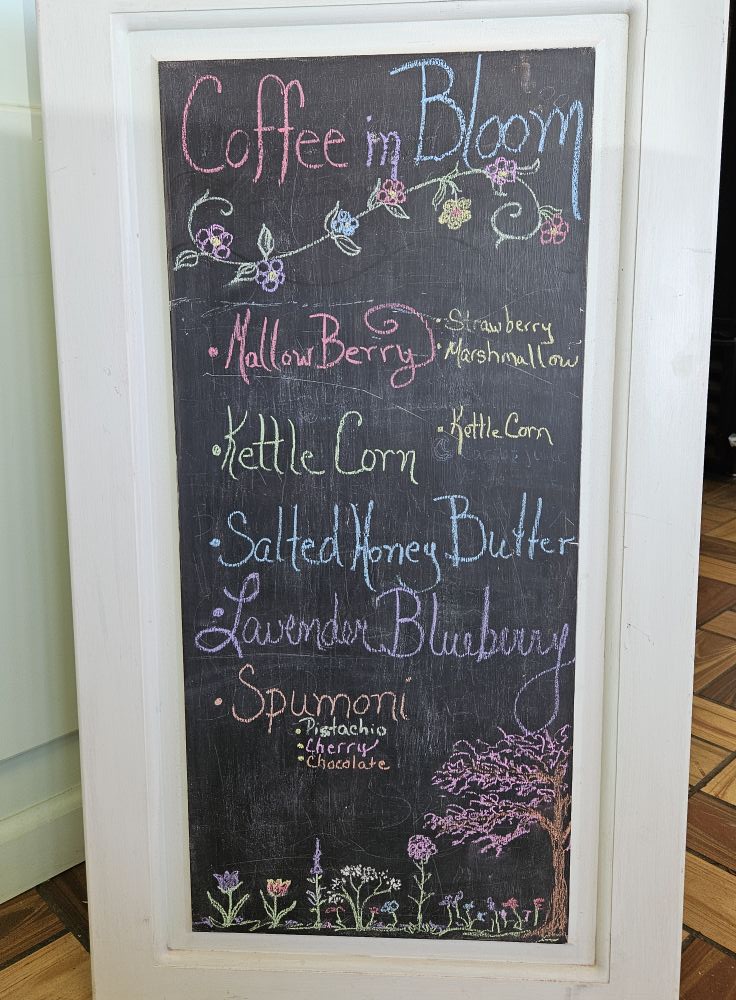 Coffee in Bloom
• MallowBerry
• Strawberry
• Marshmallow
• Kettle Corn
• Kettle Corn
• Salted Honey Butter
• Lavender Blueberry
• Spumoni
• Pistachio
• Cherry
• Chocolate